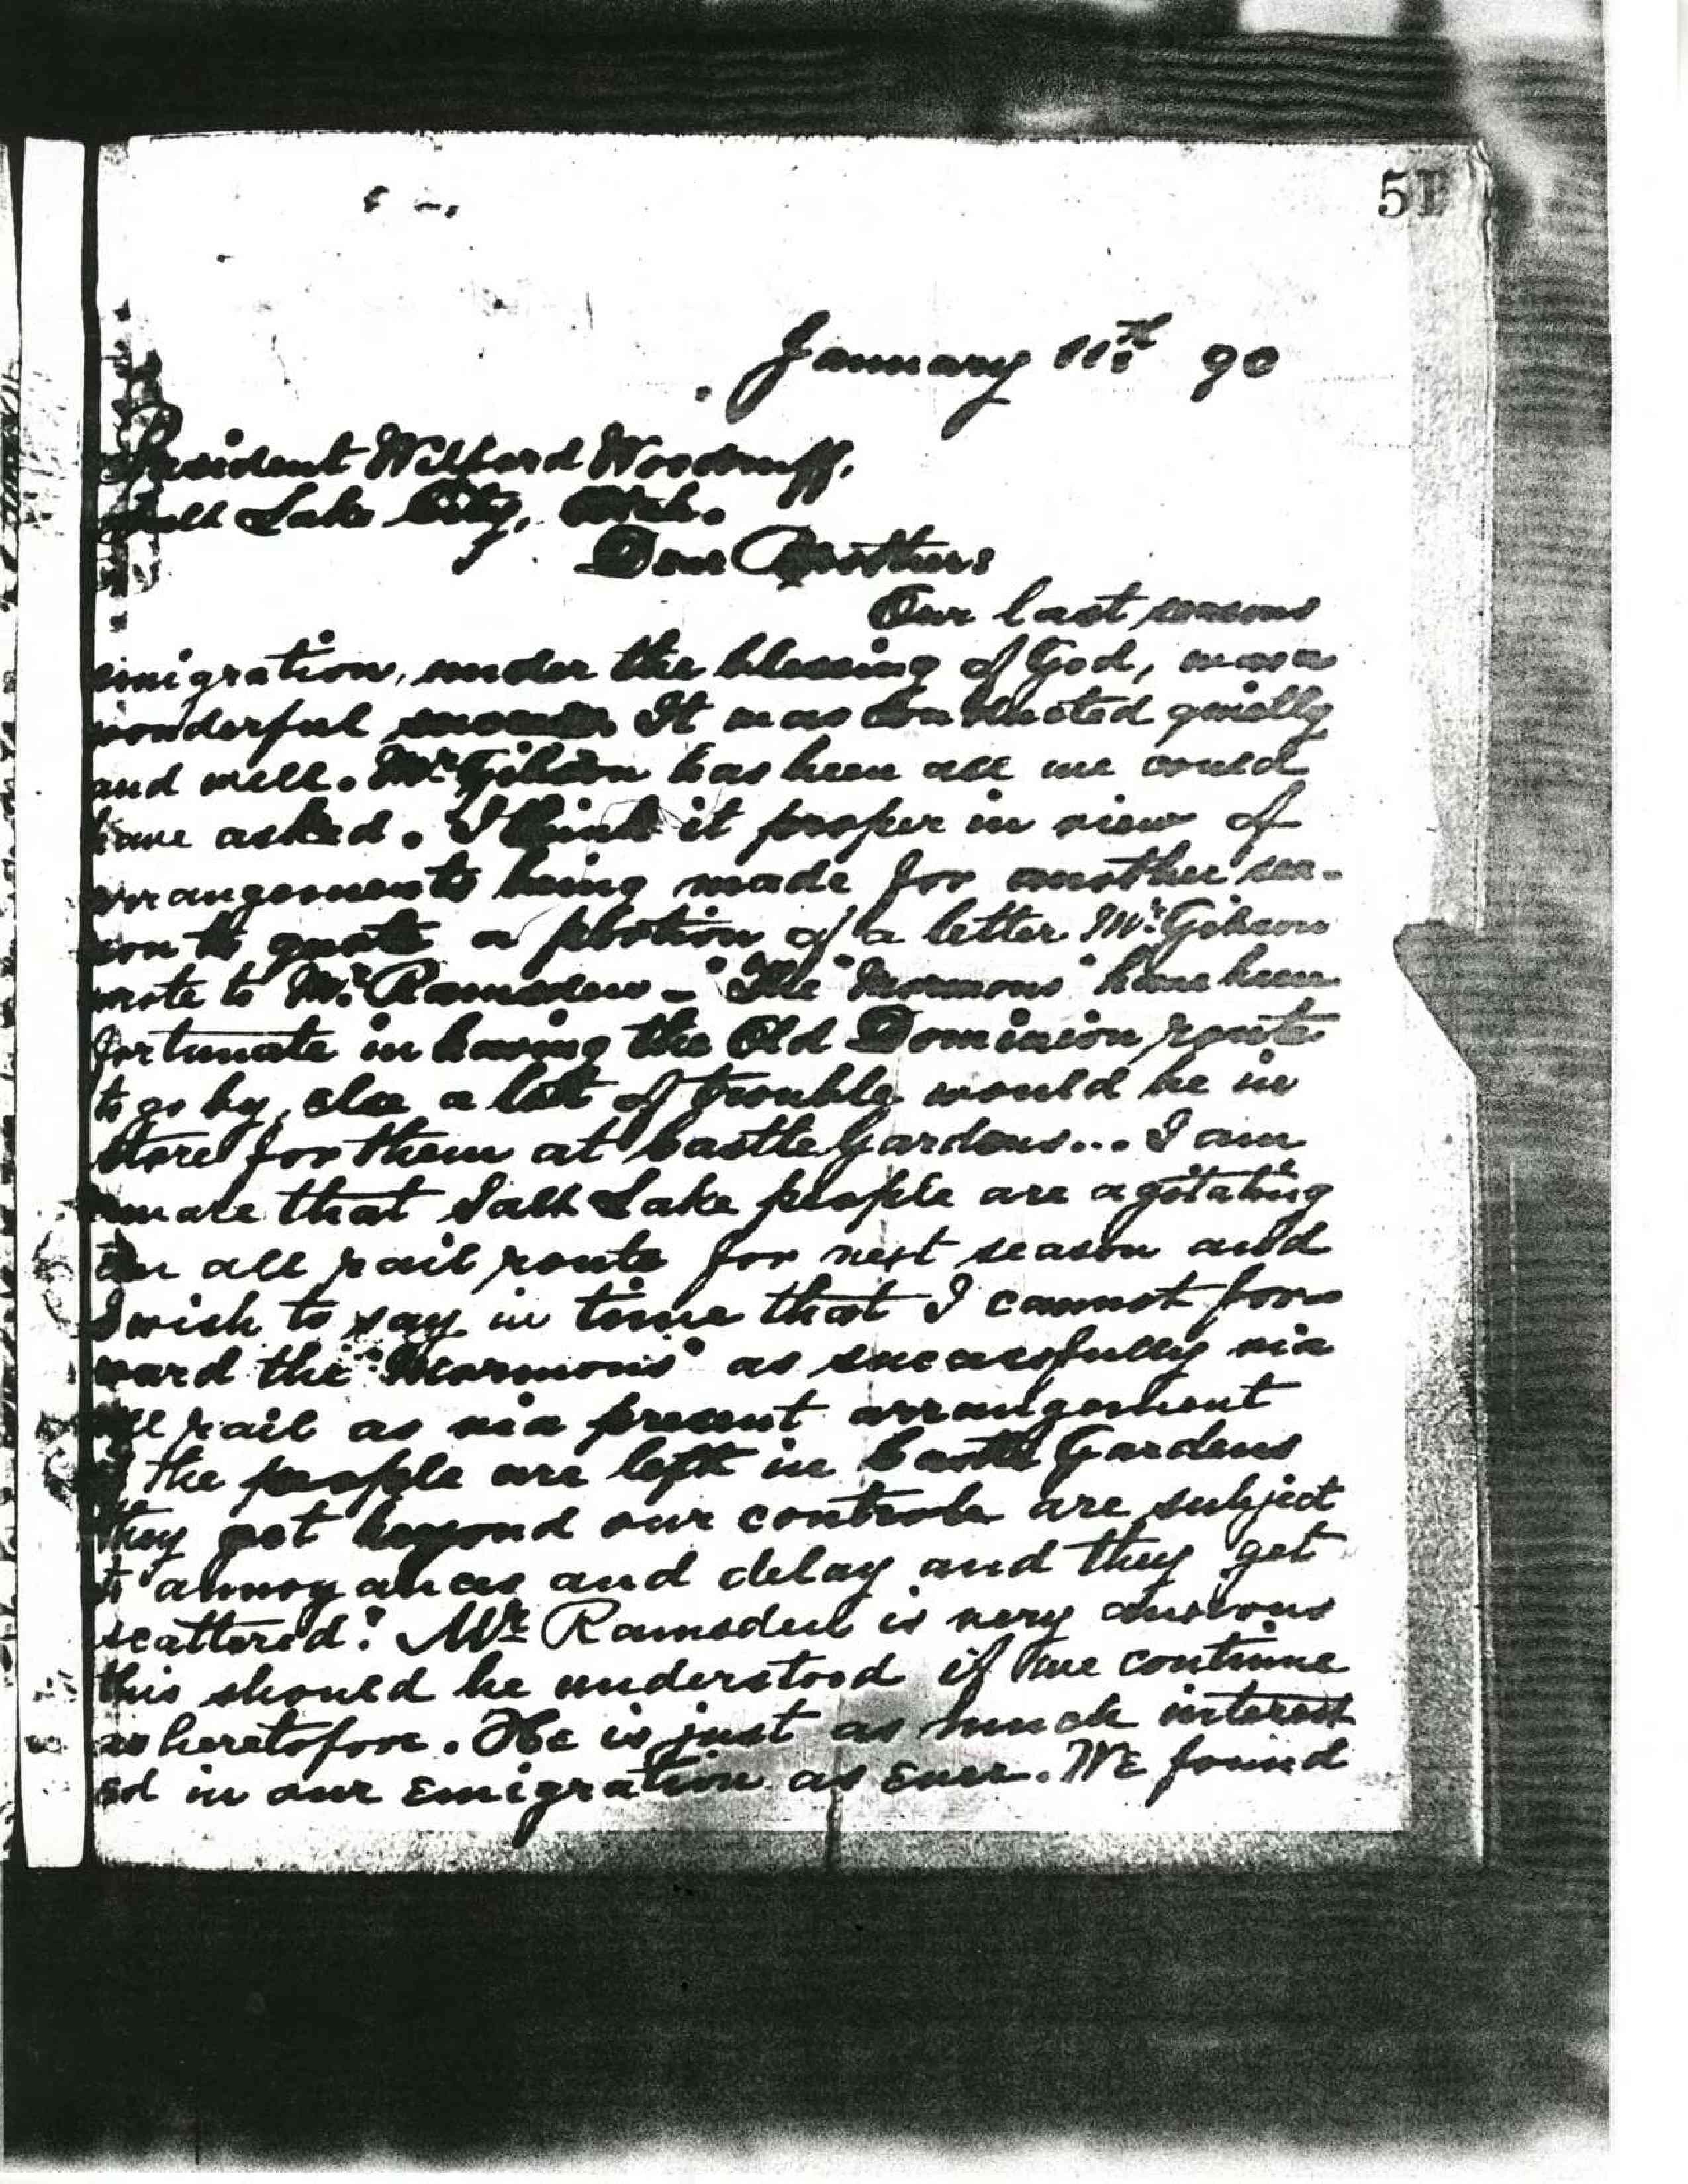 51
January 11th 90
President Wilford Woodruff,
Salt Lake City, Utah.
Dear Brother:
Our last seasons
emigration, under the blessing of God, was a
wonderful success. It was conducted quietly
and well. Mr Gibson has been all we could
have asked. I think it proper in view of
arrangements being made for another sea-
son to quote a portion of a letter Mr Gibson
wrote to Mr Ramsden - "The "Mormons" have been
fortunate in having the Old Dominion route
to go by, else a lot of trouble would be in
store for them at Castle Gardens... I am
aware that Salt Lake people are agitating
an all rail route for next season and
I wish to say in time that I cannot for
ward the "Mormons" as successfully via
all rail as via present arrangement
If the people are left in Castle Gardens
they get beyond our controle are subject
to annoyances and delay and they get
scattered". Mr Ramsden is very anxious
this should be understood if we continue
as heretofore. He is just as much interest
ed in our emigration as ever. We found